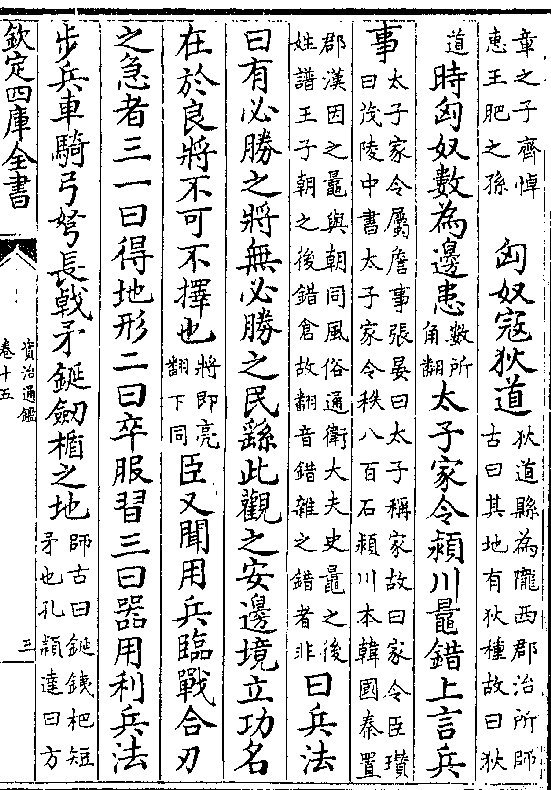 章之子齊悼
惠王肥之孫
匈奴寇狄道
狄道縣為隴西郡治所師
古曰其地有狄種故曰狄
道
時匈奴數為邊患
數所
角翻
太子家令潁川鼂錯上言兵
事
太子家令屬詹事張晏曰太子稱家故曰家令臣瓚
曰茂陵中書太子家令秩八百石潁川本韓國秦置
郡漢因之鼂與朝同風俗通衛大夫史鼂之後
姓譜王子朝之後錯倉故翻音錯雜之錯者非
曰兵法
曰有必勝之將無必勝之民繇此觀之安邊境立功名
在於良將不可不擇也
將即亮
翻下同
臣又聞用兵臨戰合刃
之急者三一曰得地形二曰卒服習三曰器用利兵法
步兵車騎弓弩長戟矛鋋劒楯之地
師古曰鋋鐵杷短
矛也孔穎達曰方
欽定四庫全書
資治通鑑
卷十五
三